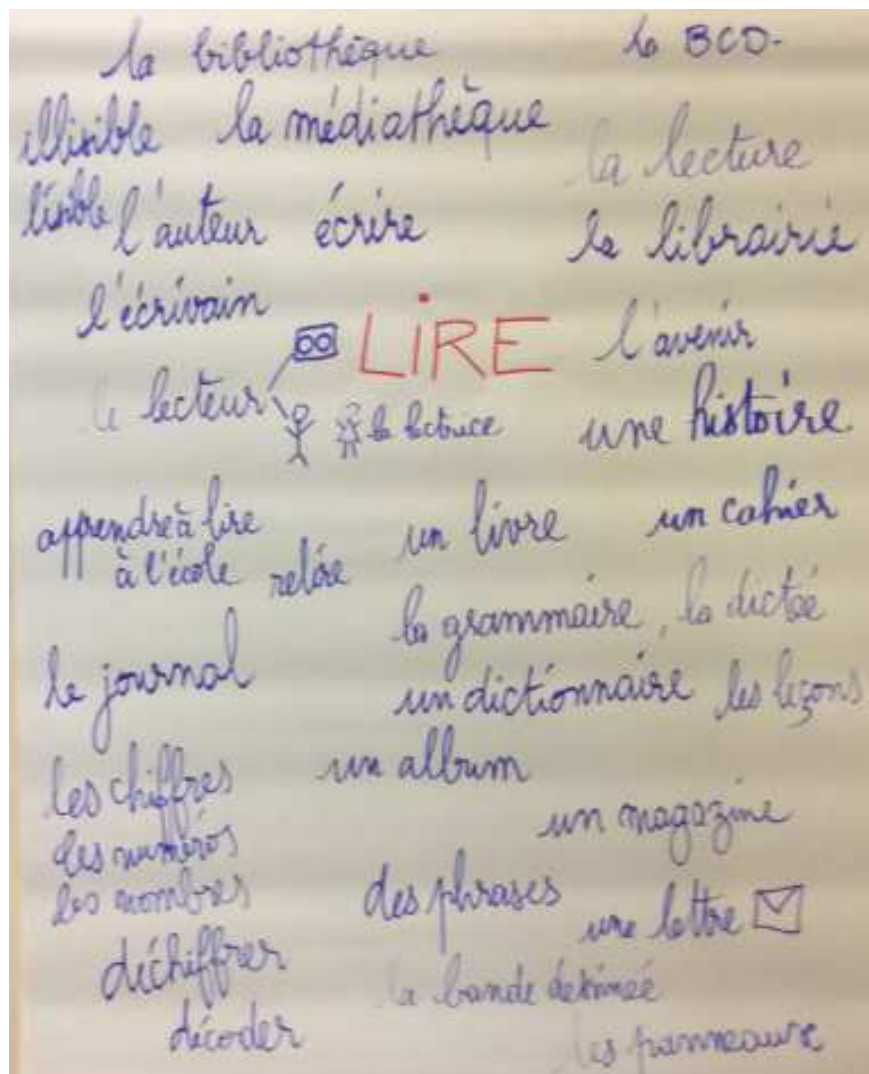 la bibliothèque
la BCD.
illisible
la médiathèque
la lecture
lisible
l'auteur
écrire
la librairie
l'écrivain
LiRE
l'avenir
le lecteur
la lectrice
une histoire
apprendre à lire
à l'école
relire
un livre
un cahier
la grammaire, la dictée
le journal
un dictionnaire
les leçons
les chiffres
un album
des numéros
un magazine
les nombres
des phrases
une lettre
déchiffrer
la bande dessinée
décoder
les panneaux